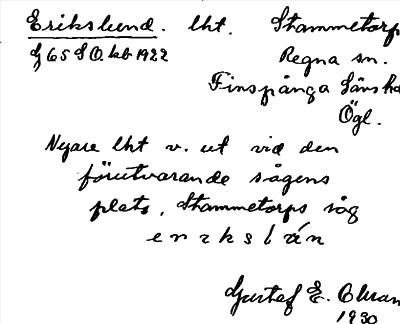 Erikslund. lht. Stammetorp
G 65 SO kb 1922 Regna sn.
Finspånga läns h
Ögl.
Nyare lht v. ut vid den
förutvarande sågens
plats, Stammetorps såg
Gustaf E.
1930